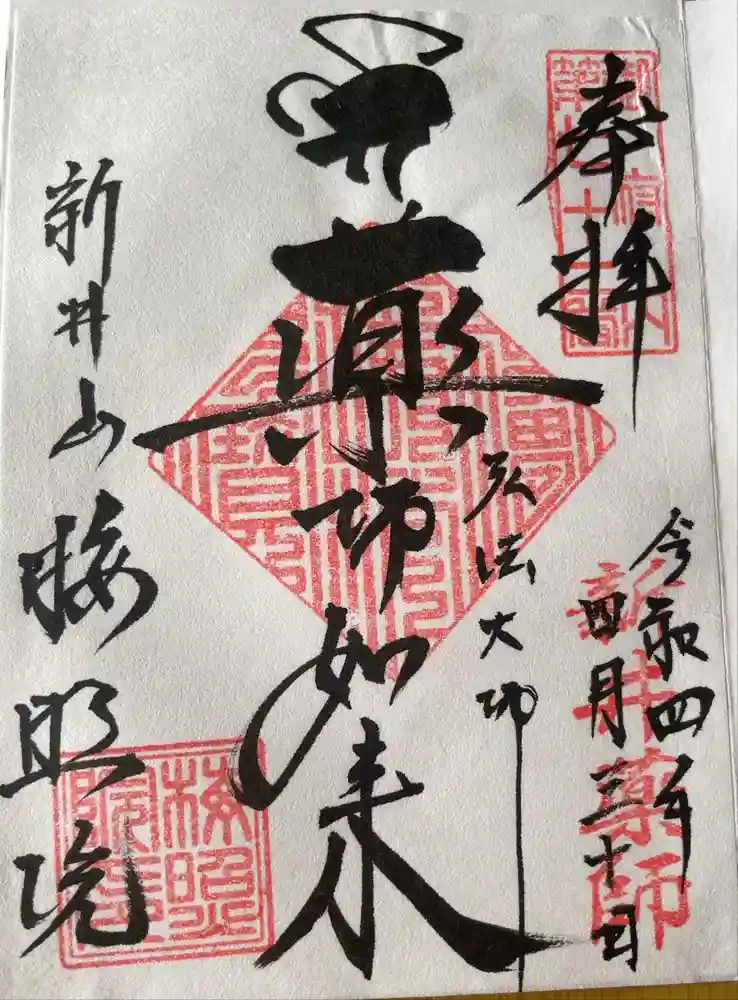 奉拝
令和四年
四月三十日
新井薬師
弘法大師
薬師如来
新井山梅照院